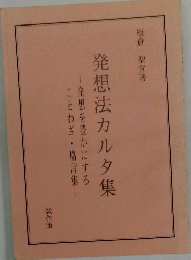 板倉 聖宣著
発想法カルタ集
発想を豊かにする
ことわざ・格言集